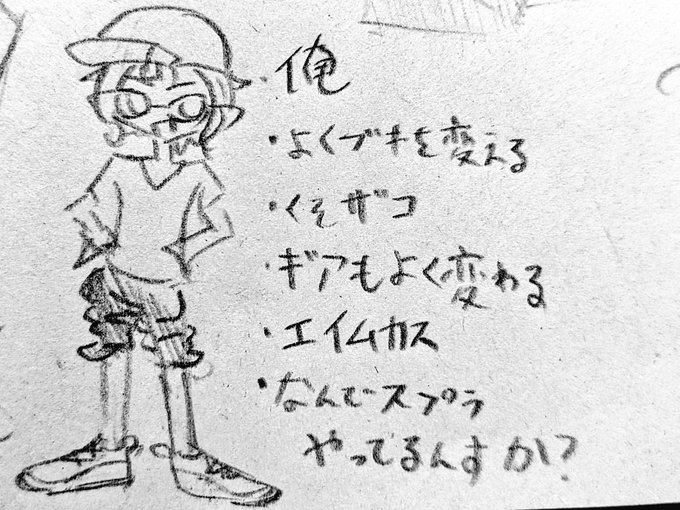 ・俺
・よくブキを変える
・くそザコ
・ギアもよく変わる
・エイムカス
・なんでスプラ
やってるんすか?